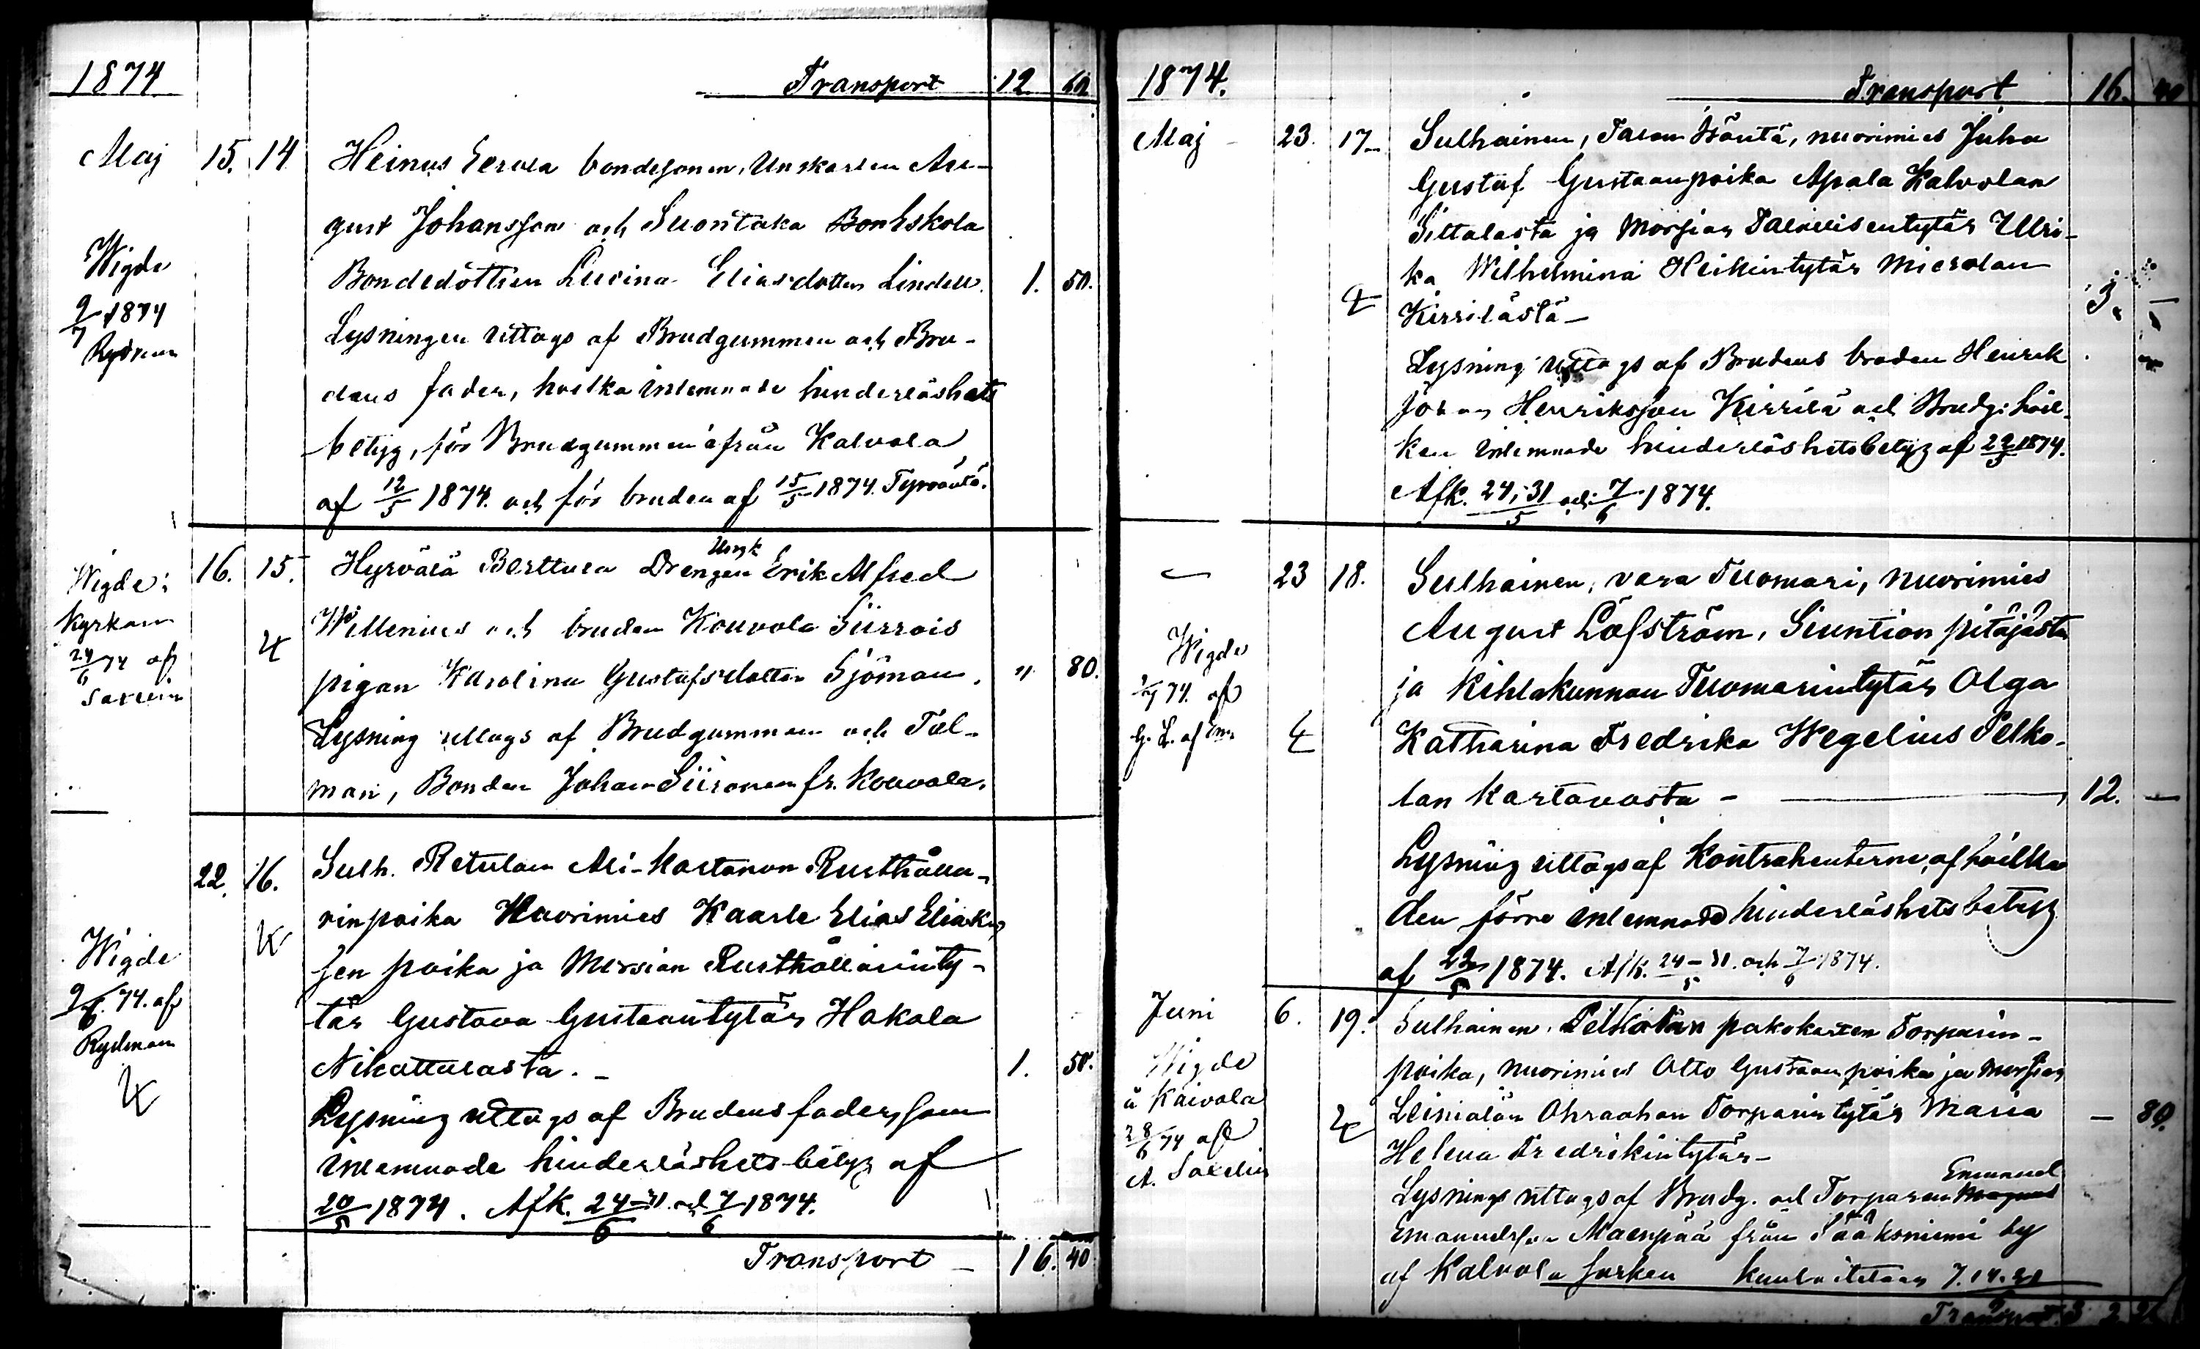 1874
Transport 12 60
Maj 15. 14 Heinus Eerola bondesonen, Unskarlen Au-
gust Johansson och Suontaka BonEskola
Bondedottren Lucina Eliasdotter Lindell. 1. 50.
Lysningen uttogs af Brudgummen och Bru-
dens fader, hvilka inlemnade hinderlöshets
betyg, för Brudgummen från Kalvola
af 12/5 1874. och för bruden af 15/5 1874. Tyrväntö.
Wigde
9/7 1874
Rydman
16. 15. Hyrvälä Berttula Drengen Ungk Erik Alfred
Willenius och bruden Kouvola
pigan Karolina Gustafsdotter Sjöman. " 80.
Lysning uttogs af Brudgummen och Tal-
man, Bonden Johan Siironen fr. Kouvola.
Wigde:
Kyrkan
24/6 74 af
Saxelin
22. 16. Sulh. Retulan Ali-Kartanon Rusthålla-
rinpoika Nuorimies Kaarle Elias Eliak
sen poika ja Morsian Rusthållarinty-
tär Gustava Gustaantytär Hakala
Nihattulasta. - 1. 50.
Lysning uttogs af Brudens fader, som
inlemnade hinderlöshets betyg af
20/5 1874. Afk. 24-31/6 och 7/6 1874.
Wigde
9/6 74. af
Rydman
Transport - 16. 40
1874.
Transport 16. 40
Maj - 23. 17- Sulhainen, Talon Isäntä, nuorimies Juha
Gustaf Gustaanpoika Apala Kalvolan
Sittalasta ja Morsian Talollisentytär Ulri-
ka Wilhelmina Heikintytär Mierolan
Kirrilästä - 3. -
Lysning uttogs af Brudens broder Henrik
Johan Henriksson Kirrilä och Brudg: hvil-
ken inlemnade hinderlöshetsbetyg af 22/5 1874.
Afk. 24, 31/5 och 7/6 1874.
23 18. Sulhainen, vara Tuomari, nuorimies
August Löfström, Siuntion pitäjästä
ja Kihlakunnan Tuomarintytär Olga
Katharina Fredrika Wegelius Pelko-
lan Kartanosta - 12. -
Lysning uttogs af Kontrahenterne, af hvilka
den förre inlemnade hinderlöshets betyg
af 22/5 1874. Afk. 24-31/5. och 7/6 1874.
Wigde
74. af
Juni 6. 19. Sulhainen Pelkolan Torparin-
poika, nuorimies Otto Gustaanpoika ja Morsian
Leinialan Ohraahon Torparintytär Maria - 80.
Helena Fredrikintytär -
Lysning uttogs af Brudg. och Torparen Emanuel
Emanuelsson Maenpää från Sääksniemi by
af Kalvola socken kuulutetaan 7. 14. 21
Wigde
à Kaivola
28/6 74 af
A. Saxelin
Transport